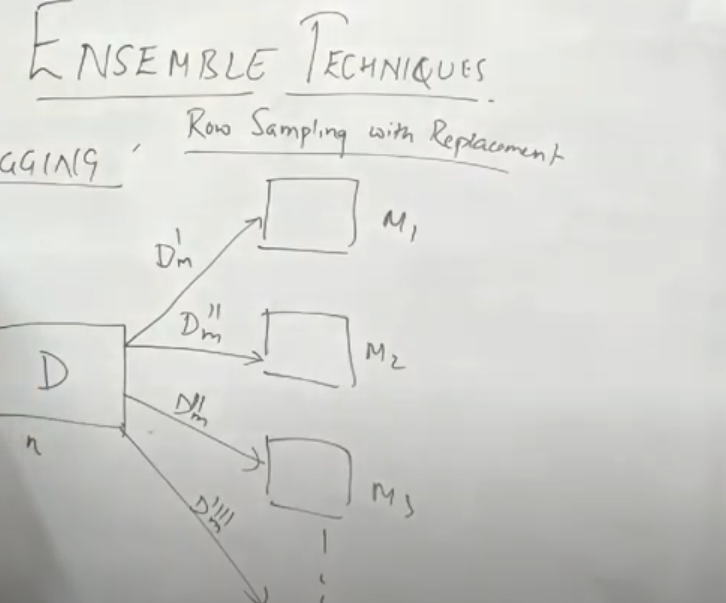 ENSEMBLE TECHNIQUES.
Row Sampling with Replacement
GGING
M1
D'm
D''m
M2
D
D'''m
n
M3
D''''m